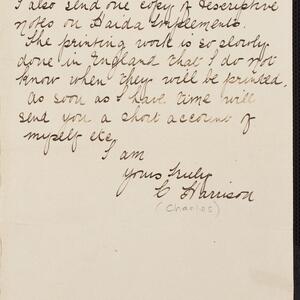 I also send one copy of Descriptive
notes on Haida Implements.
The printing work is so slowly
done in England that I do not
know when they will be printed.
As soon as I have time will
send you a short account of
myself etc
I am
Yours truly
C Harrison
(Charles)